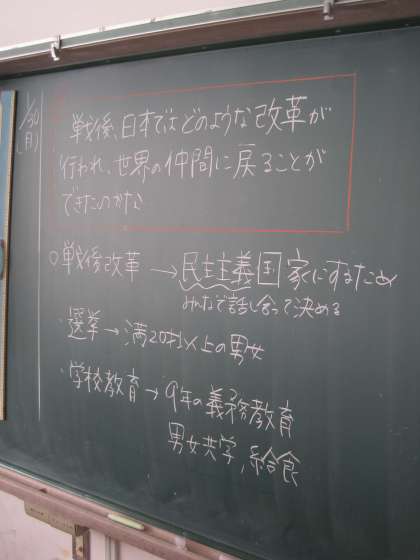 1/30
(月)
戦後、日本ではどのような改革が
行われ、世界の仲間に戻ることが
できたのかな
○戦後改革 → 民主主義国家にするため
みんなで話し合って決める
・選挙→満20才以上の男女
・学校教育→9年の義務教育
男女共学、給食